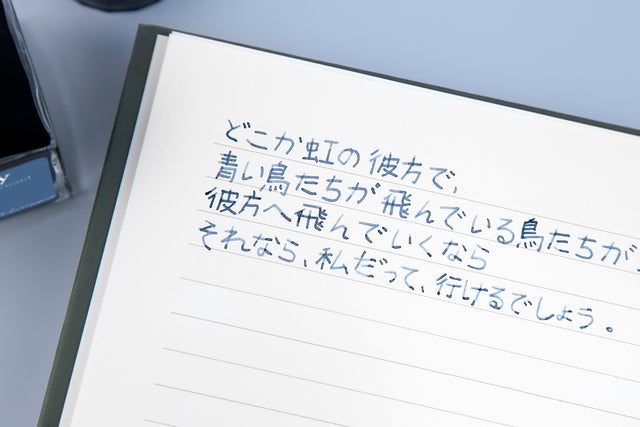 どこか虹の彼方で、
青い鳥たちが飛んでいる鳥たちが、
彼方へ飛んでいくなら
それなら、私だって、行けるでしょう。